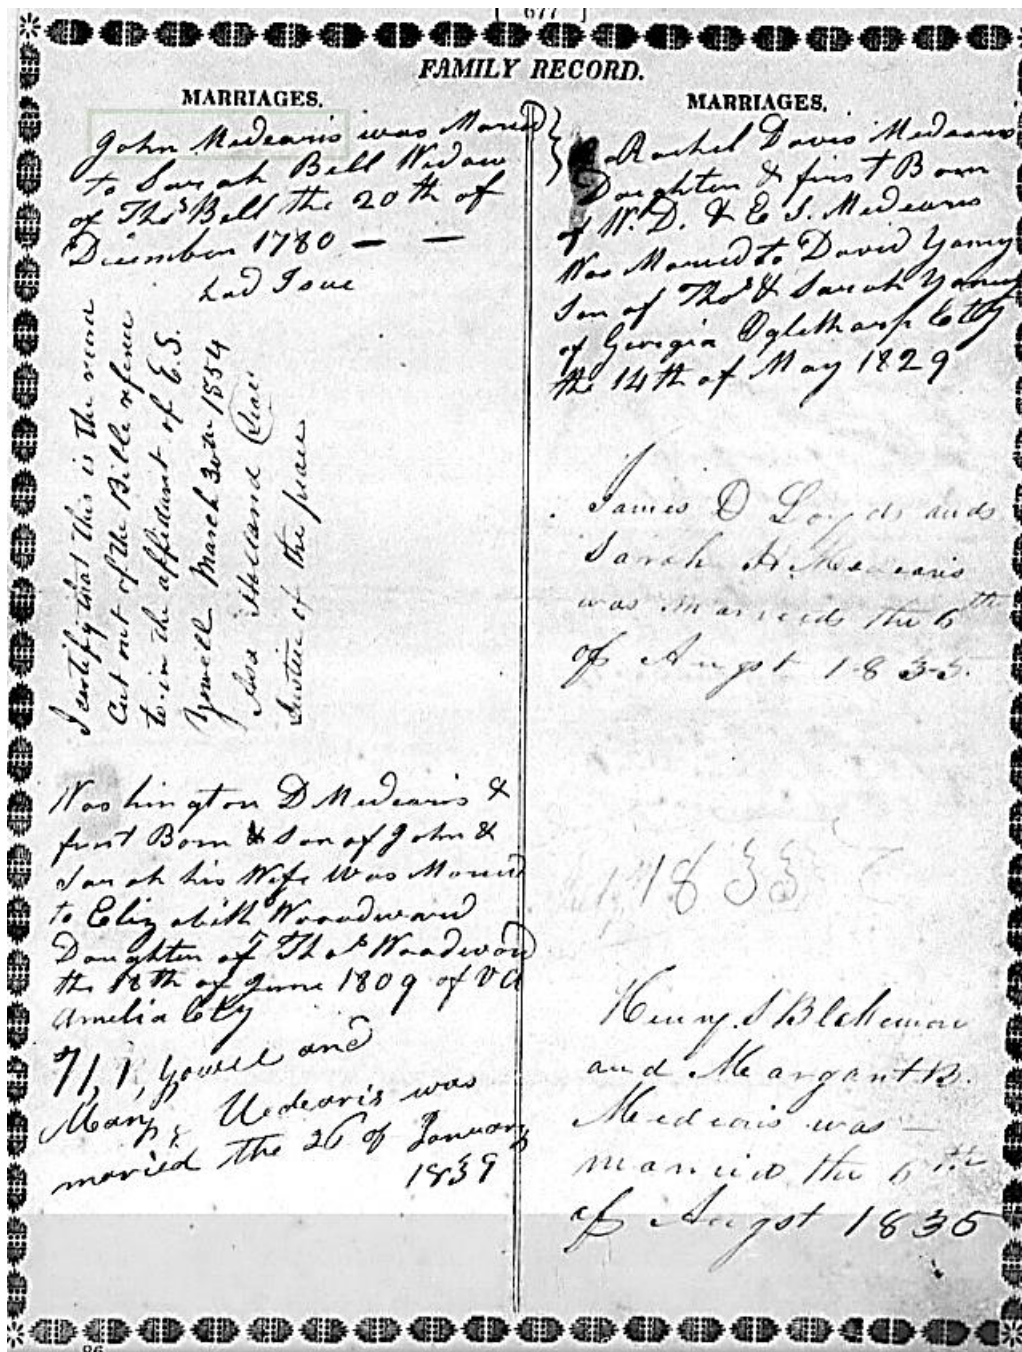 [ 677 ]
FAMILY RECORD.
MARRIAGES.
John Medearis was Maried
to Sarah Bell Widow
of Thos Bell the 20th of
Dicember 1780 — —
had Isue
I certify that this is the record
Cut out of the Bible refered
to in the affidavit of E. S.
Yowell March 30th 1854
Holland Seal
Justice of the peace
Washington D Medearis &
first Born & Son of John &
Sarah his Wife Was Maried
to Elizabeth Woodward
Daughter of Thos Woodward
the 18th of June 1809 of VA
Amelia Cty
Yowel and
Mary Medearis was
maried the 26 of January
1839
MARRIAGES.
Rachel Davis Medearis
Daughter & first Born
of W. D. & E S. Medearis
Was Maried to David Yancy
Son of Thos & Sarah Yancy
of Georgia Oglethorp Cty
the 14th of May 1829
James D Loyd and
Sarah H. Medearis
was married the 6th
of Augst 1835.
1833
Henry S Blakemore
and Margaret B.
Medearis was
married the 6th
of Augst 1835
86